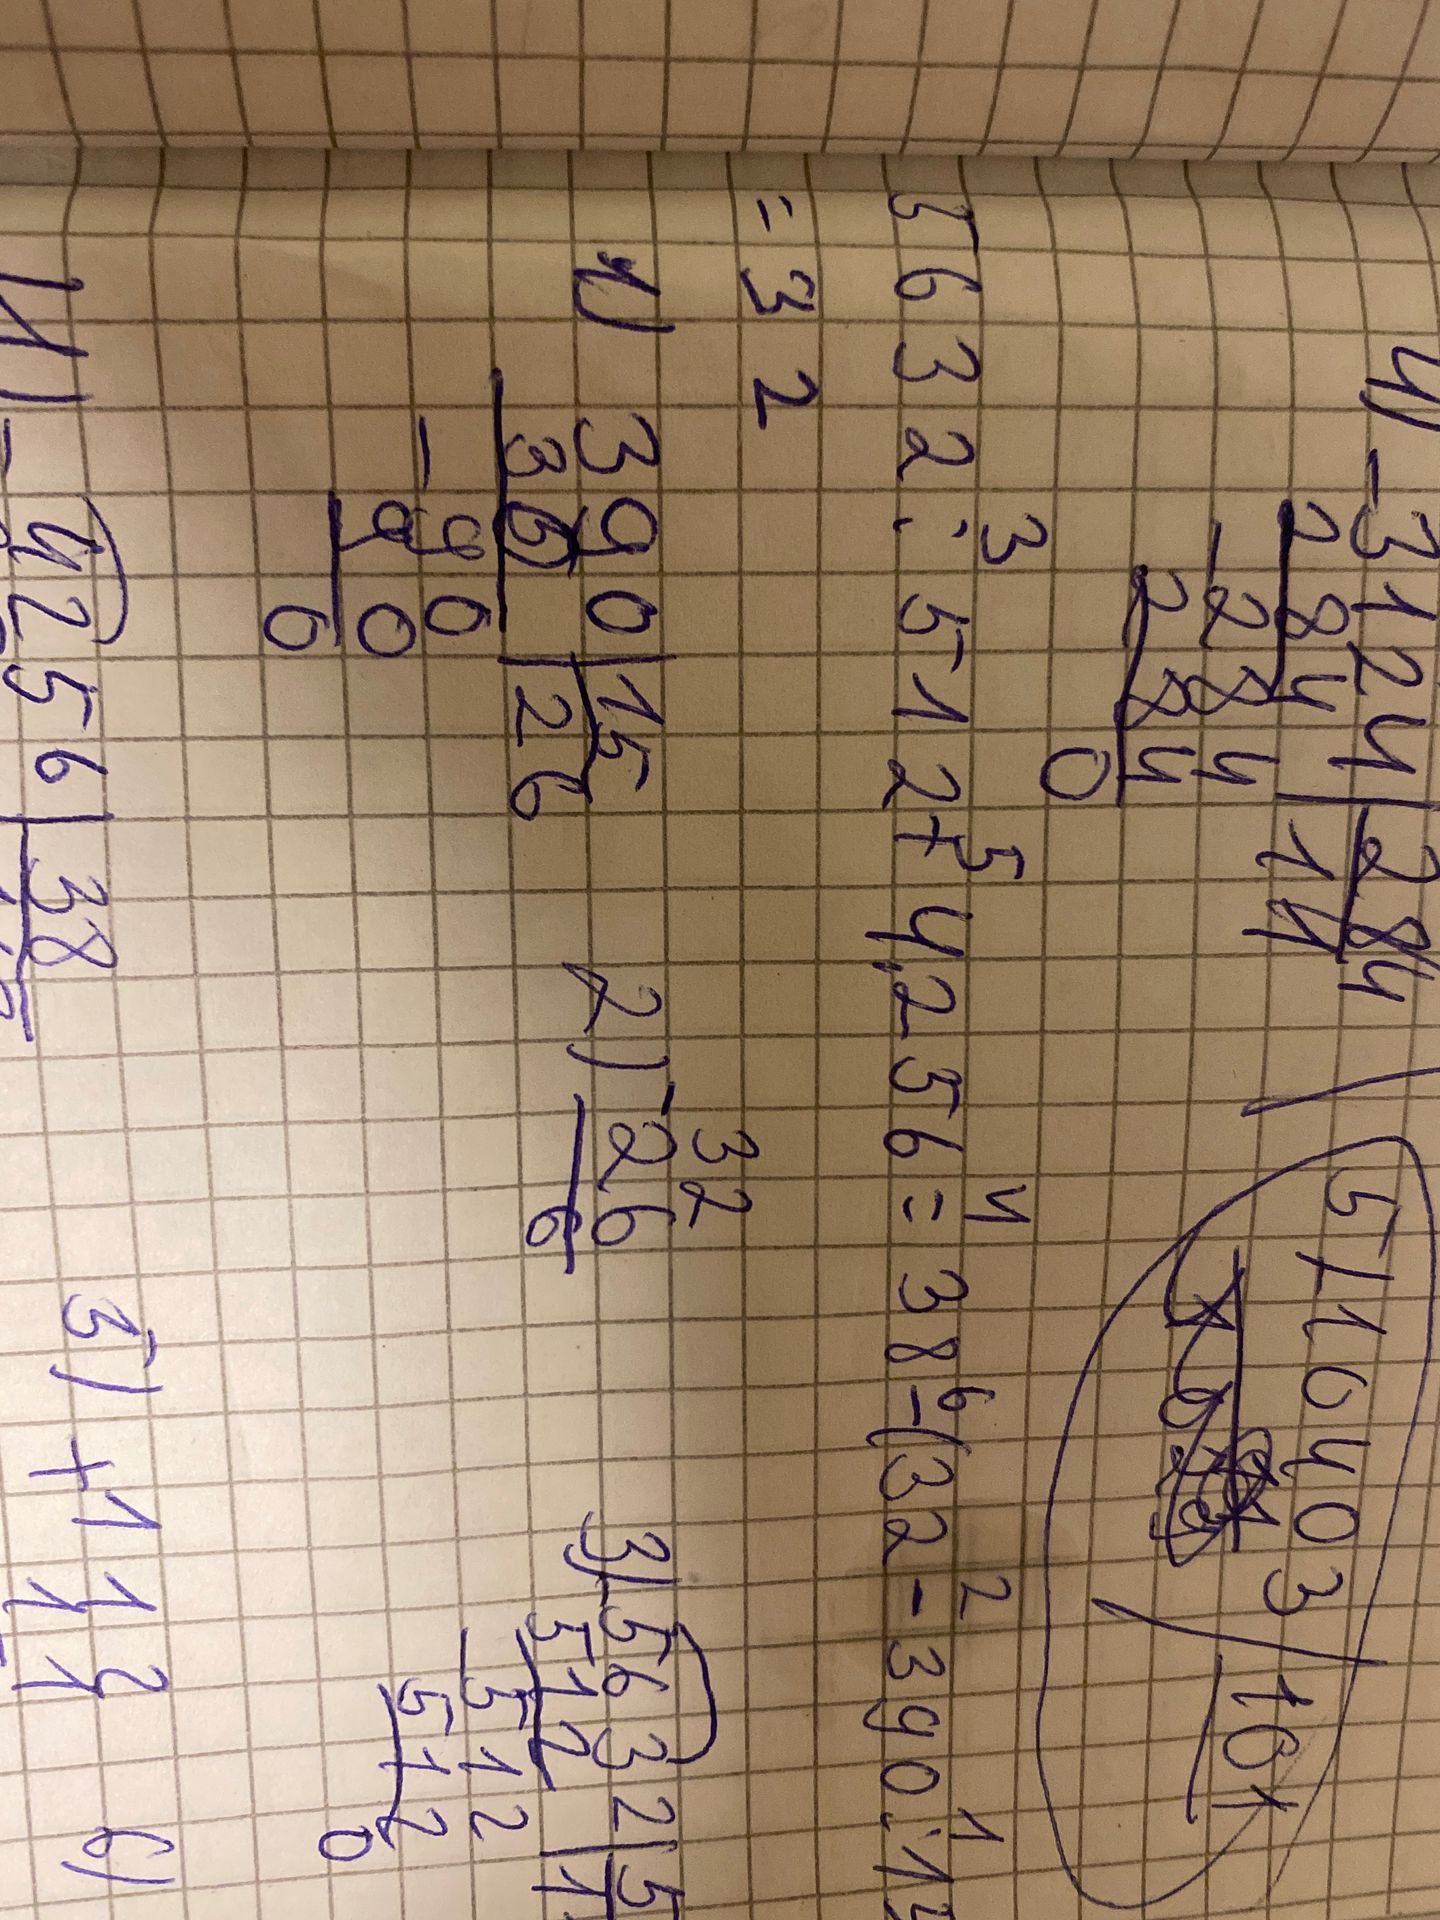 4) - 3124 | 284
284 | 11
- 284
284
0
5) 16403 | 101
3 5 4 6 2 1
5632 : 512 + 4256 : 38 - (32 - 390 : 15
= 32
1) 390 | 15
30 | 26
- 90
90
0
2) - 32
26
6
3) - 5632 | 5
512 | 1
- 512
512
0
4) - 4256 | 38
5) + 112
11
6)